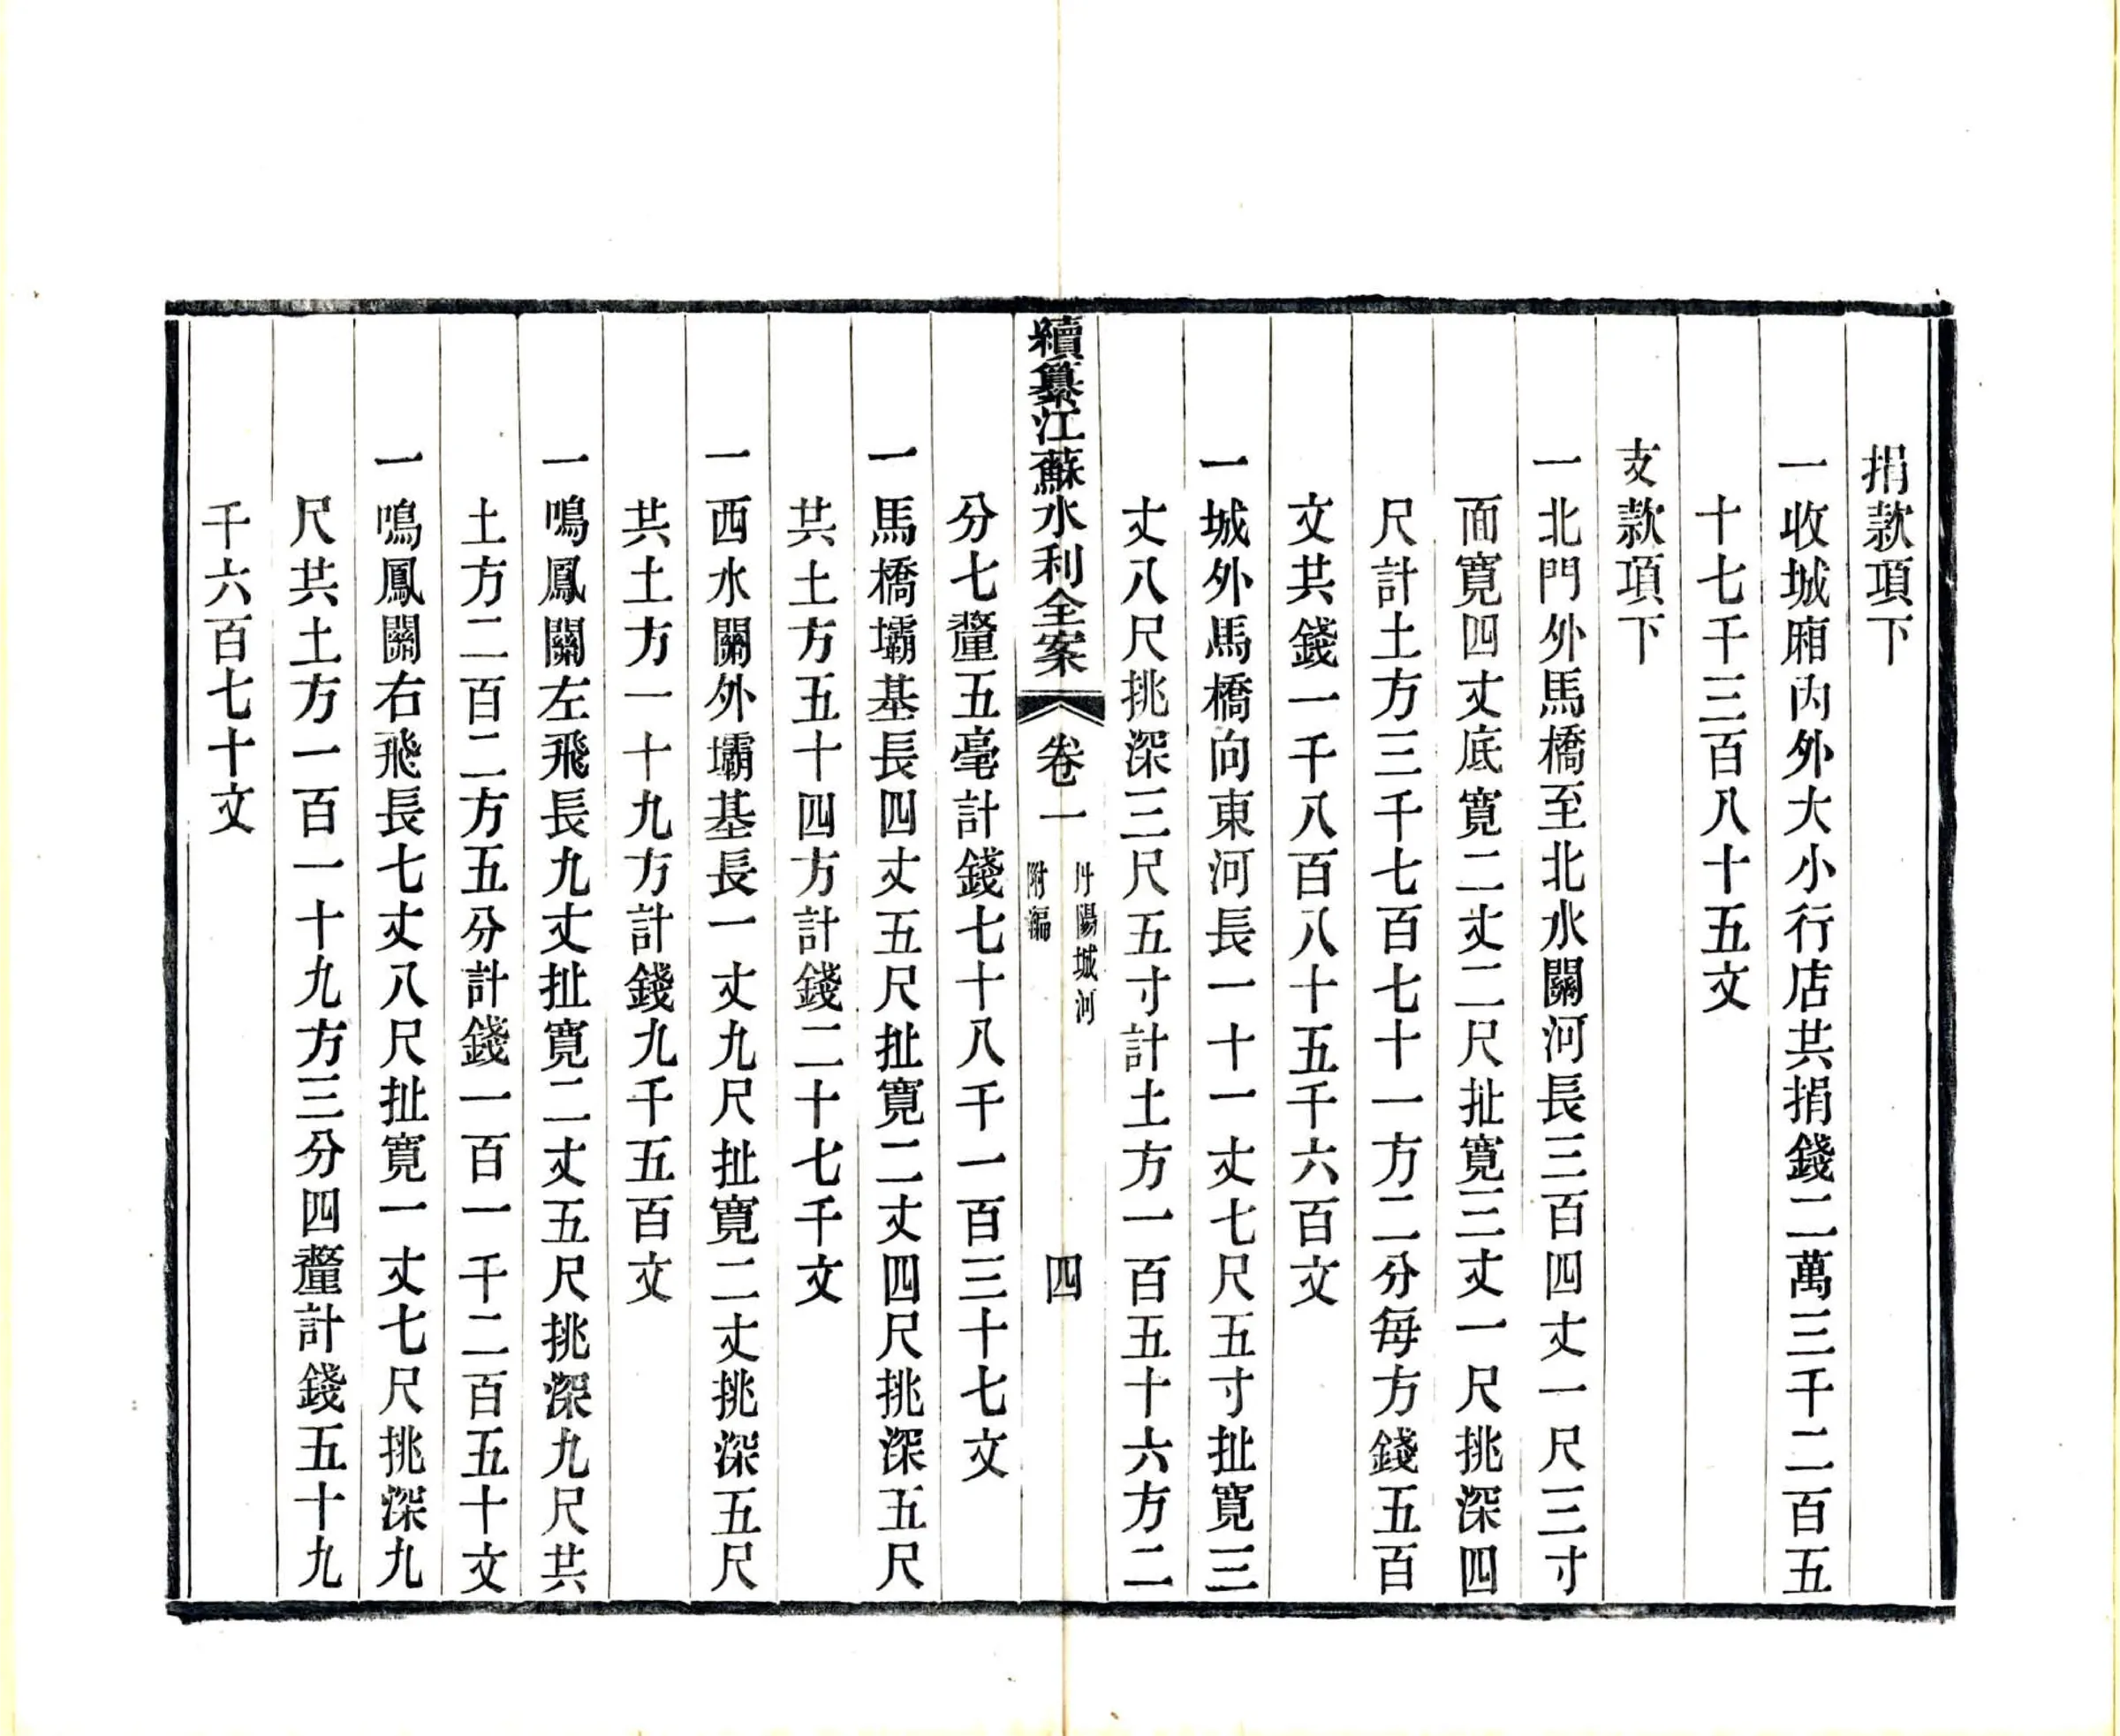 捐款項下
一收城廂內外大小行店共捐錢二萬三千二百五
十七千三百八十五文
支款項下
一北門外馬橋至北水關河長三百四丈一尺三寸
面寬四丈底寬二丈二尺扯寬三丈一尺挑深四
尺計土方三千七百七十一方二分每方錢五百
文共錢一千八百八十五千六百文
一城外馬橋向東河長一十一丈七尺五寸扯寬三
丈八尺挑深三尺五寸計土方一百五十六方二
續纂江蘇水利全案 卷一
丹陽城河
附編
四
分七釐五毫計錢七十八千一百三十七文
一馬橋壩基長四丈五尺扯寬二丈四尺挑深五尺
共土方五十四方計錢二十七千文
一西水關外壩基長一丈九尺扯寬二丈挑深五尺
共土方一十九方計錢九千五百文
一鳴鳳關左飛長九丈扯寬二丈五尺挑深九尺共
土方二百二方五分計錢一百一千二百五十文
一鳴鳳關右飛長七丈八尺扯寬一丈七尺挑深九
尺共土方一百一十九方三分四釐計錢五十九
千六百七十文